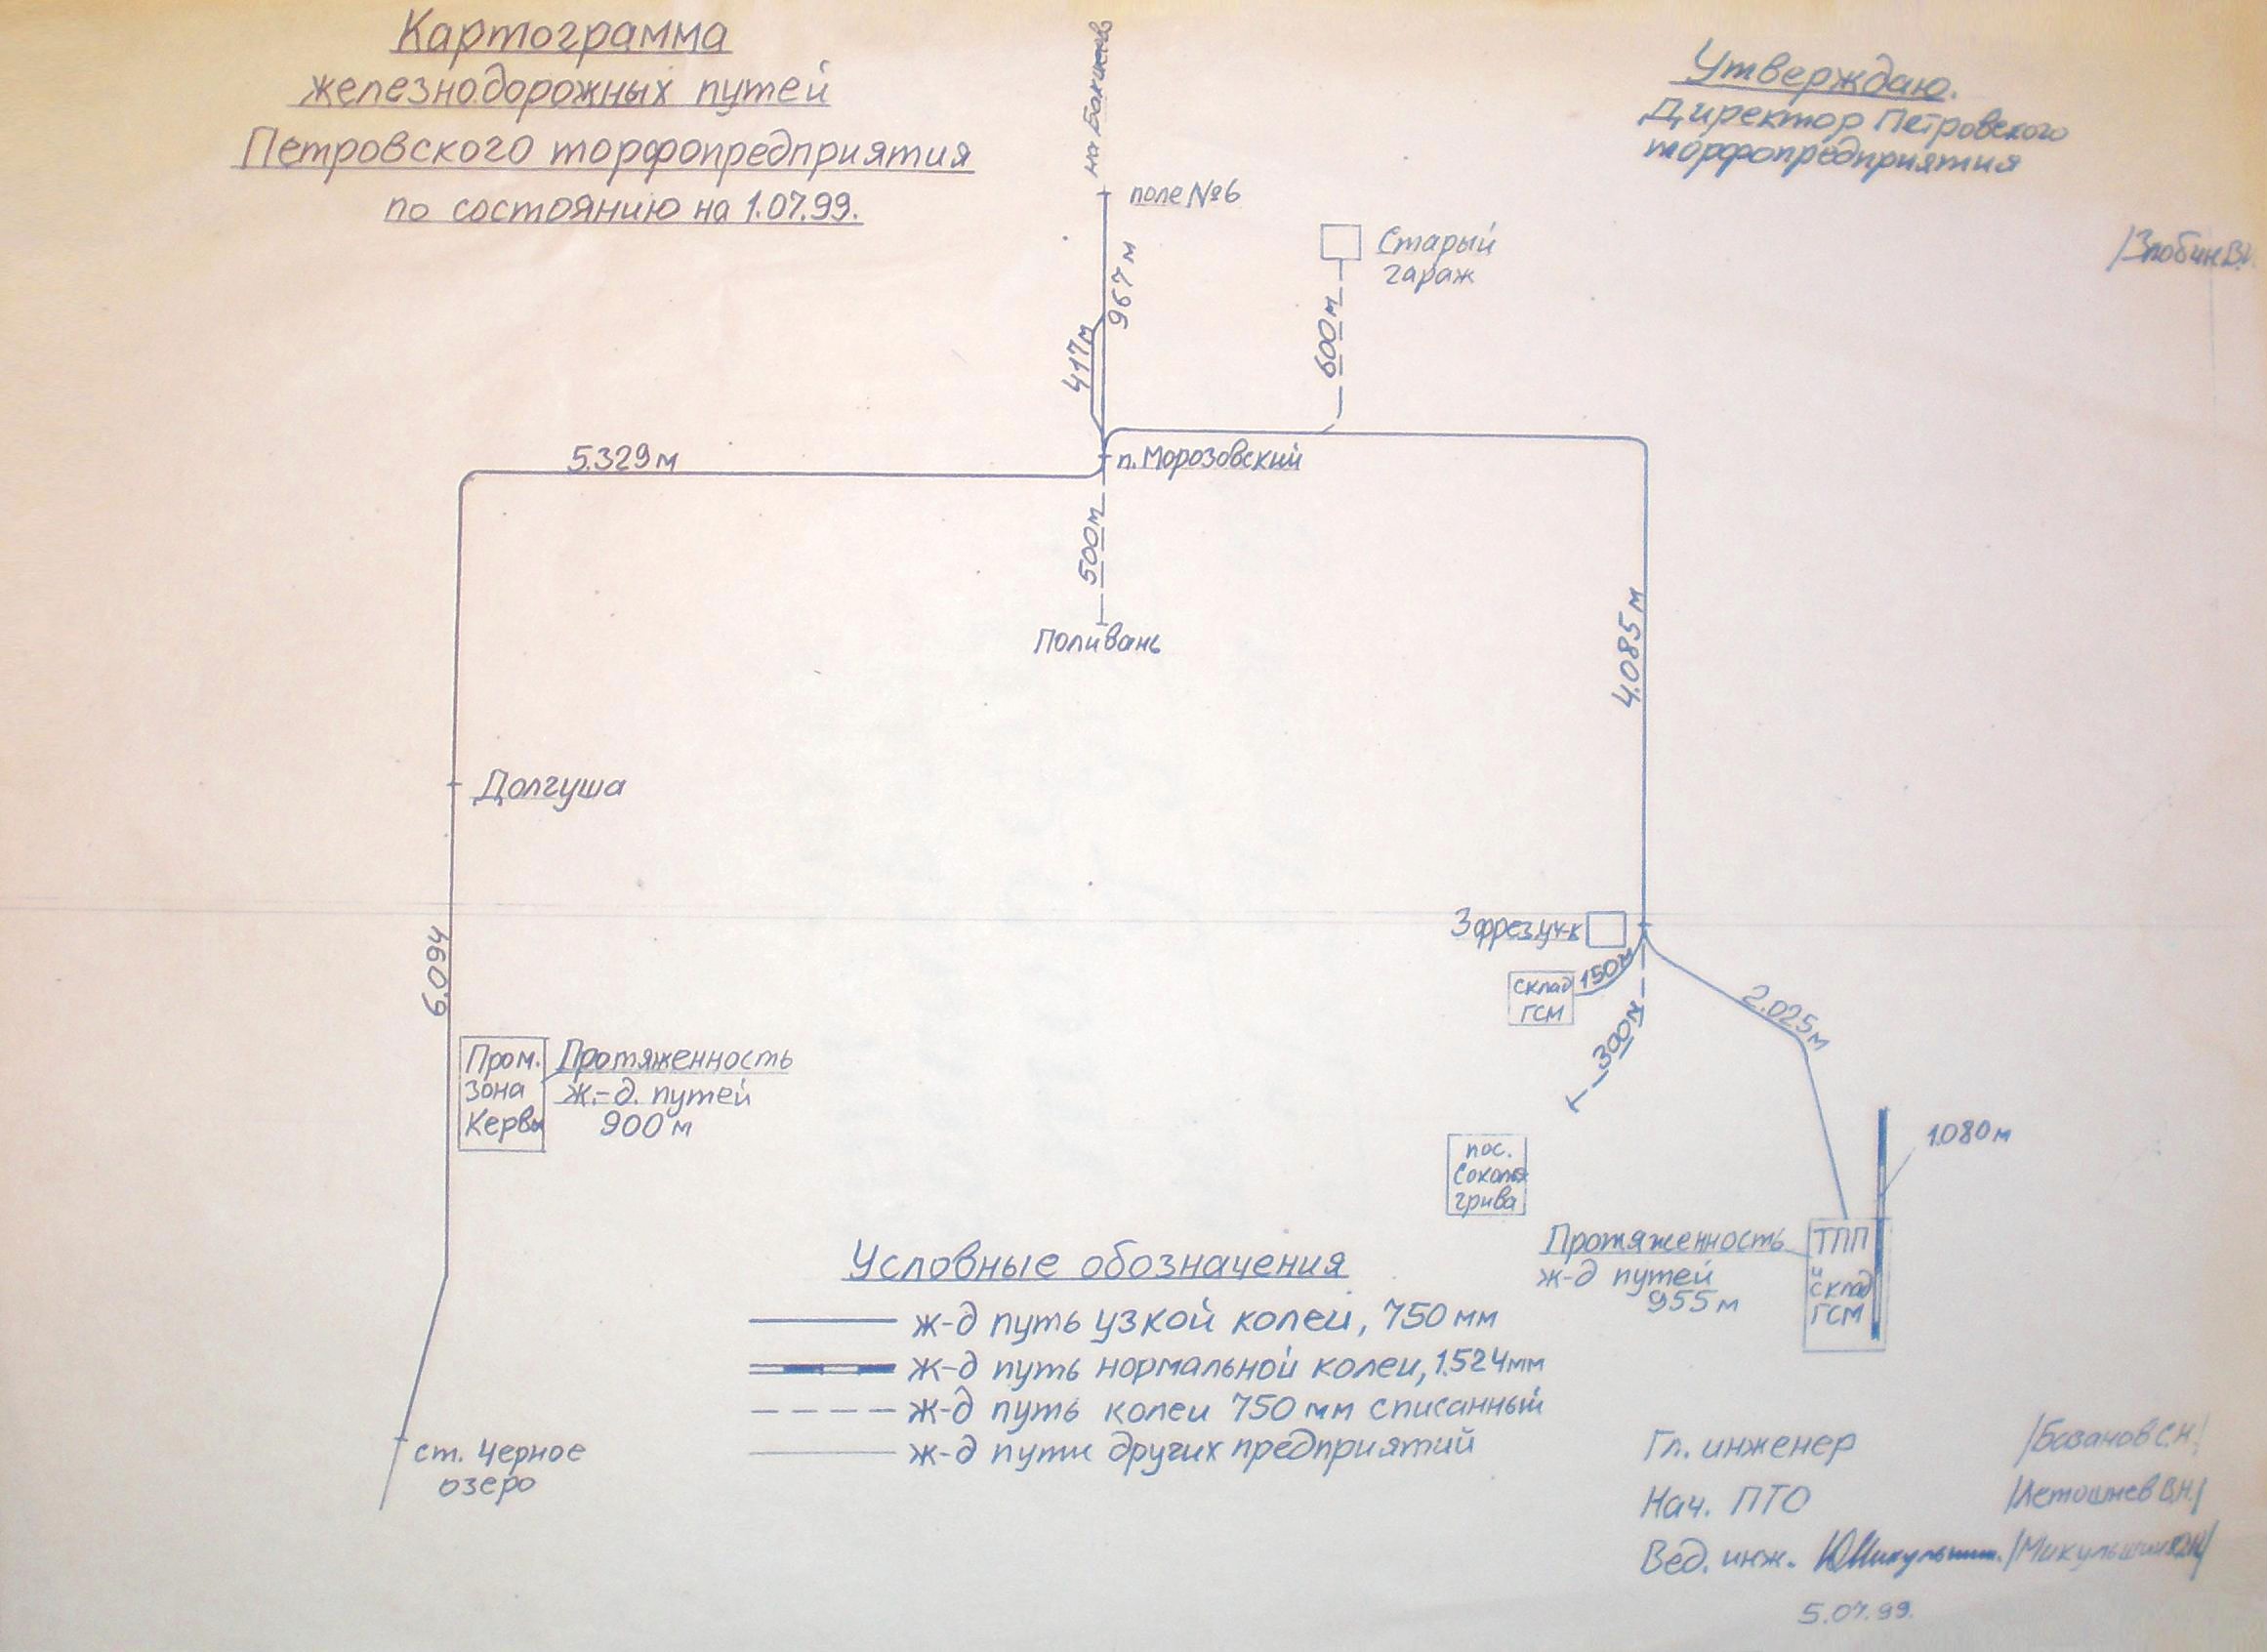 Картограмма
железнодорожных путей
Петровского торфопредприятия
по состоянию на 1.07.99.
Утверждаю.
Директор Петровского
торфопредприятия
/Злобин В.И.
на Бакшеево
поле №6
967 м
417м
Старый
гараж
600м
5.329 м
п. Морозовский
500м
Поливань
4.085 м
Долгуша
6.094
3 фрез.уч-к
150м
склад
ГСМ
300м
2.025м
Пром.
зона
Керва
Протяженность
ж.-д. путей
900 м
пос.
Соколья
грива
1.080 м
Протяженность
ж-д путей
955 м
ТПП
и
склад
ГСМ
ст. Черное
озеро
Условные обозначения
ж-д путь узкой колеи, 750 мм
ж-д путь нормальной колеи, 1.524мм
ж-д путь колеи 750 мм списанный
ж-д пути других предприятий
Гл. инженер /Базанов С.Н./
Нач. ПТО /Летошнев В.Н./
Вед. инж.
5.07.99.